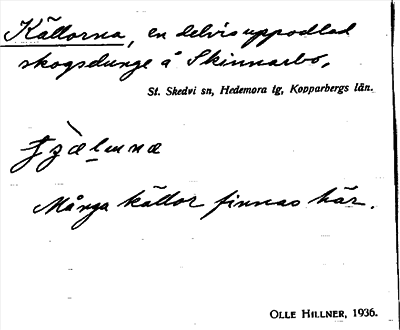 Källorna, en delvis uppodlad
skogsdunge å Skinnarbo.
St. Skedvi sn, Hedemora tg, Kopparbergs län.
Många källor finnas här.
OLLE HILLNER, 1936.